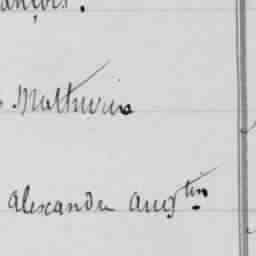 ançois.
Mathurin
Alexandre Augtin